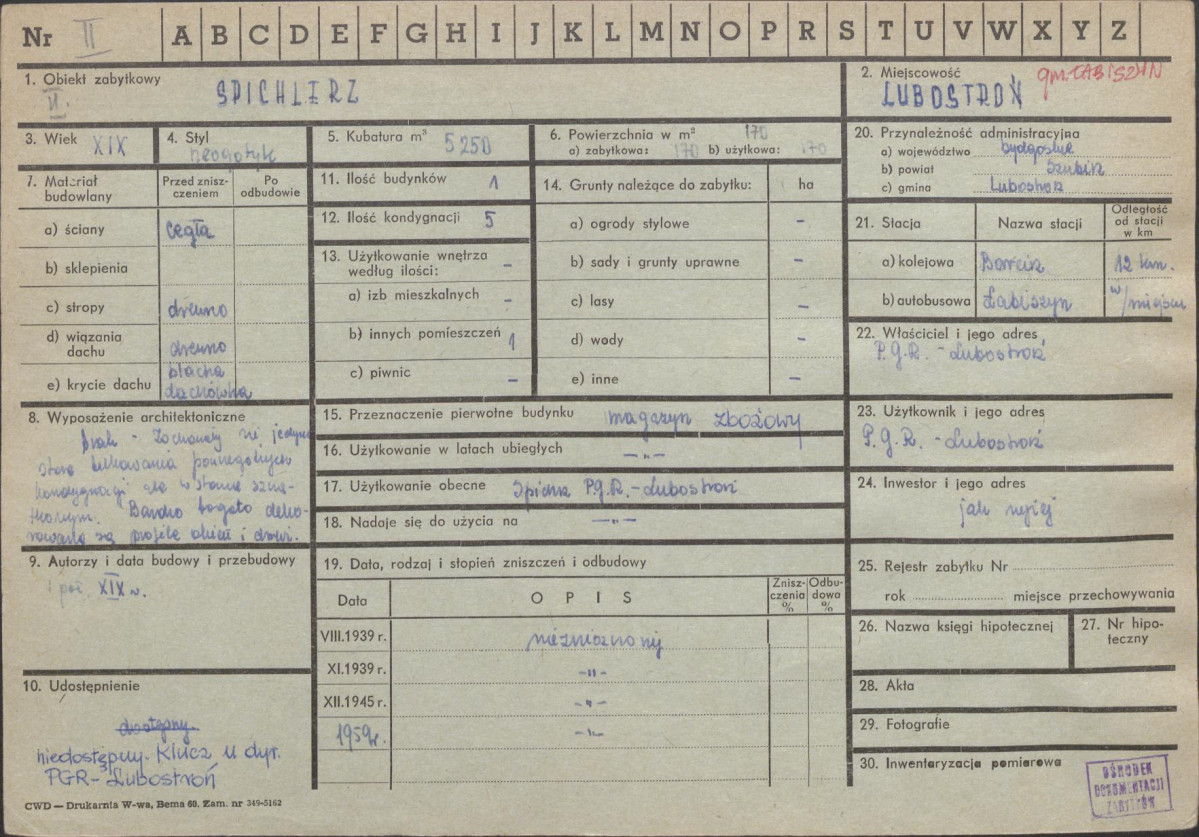 Nr II A B C D E F G H I J K L M N O P R S T U V W X Y Z
1. Obiekt zabytkowy
II.
SPICHLERZ
2. Miejscowość
gm. ŁABISZYN
LUBOSTROŃ
3. Wiek XIX
4. Styl
neogotyk
5. Kubatura m³ 5250
6. Powierzchnia w m² 170
a) zabytkowa: 170 b) użytkowa: 170
20. Przynależność administracyjna
a) województwo bydgoskie
b) powiat Szubin
c) gmina Lubostroń
7. Materiał budowlany
Przed zniszczeniem
Po odbudowie
a) ściany cegła
b) sklepienia
c) stropy drewno
d) wiązania dachu drewno
e) krycie dachu blacha dachówka
11. Ilość budynków 1
12. Ilość kondygnacji 5
13. Użytkowanie wnętrza według ilości: –
a) izb mieszkalnych –
b) innych pomieszczeń 1
c) piwnic –
14. Grunty należące do zabytku: ha
a) ogrody stylowe –
b) sady i grunty uprawne –
c) lasy –
d) wody –
e) inne –
21. Stacja
Nazwa stacji
Odległość od stacji w km
a) kolejowa Barcin 12 km.
b) autobusowa Łabiszyn w/miejscu
22. Właściciel i jego adres
P.G.R. - Lubostroń
8. Wyposażenie architektoniczne
Brak - Zachowały się jedynie
stare belkowania poszczególnych
kondygnacji ale w stanie szczą-
tkowym. Bardzo bogato deko-
rowane są profile okien i drzwi.
15. Przeznaczenie pierwotne budynku magazyn zbożowy
16. Użytkowanie w latach ubiegłych –„–
17. Użytkowanie obecne Spichrz P.G.R. - Lubostroń
18. Nadaje się do użycia na –„–
23. Użytkownik i jego adres
P.G.R. - Lubostroń
24. Inwestor i jego adres
jak wyżej
9. Autorzy i data budowy i przebudowy
I poł. XIX w.
19. Data, rodzaj i stopień zniszczeń i odbudowy
Data
OPIS
Zniszczenia %
Odbudowa %
VIII.1939 r. niezniszczony
XI.1939 r. –„–
XII.1945 r. –„–
1959r. –„–
25. Rejestr zabytku Nr
rok miejsce przechowywania
26. Nazwa księgi hipotecznej
27. Nr hipoteczny
10. Udostępnienie
dostępny.
niedostępny. Klucz u dyr.
PGR - Lubostroń
28. Akta
29. Fotografie
30. Inwentaryzacja pomiarowa
OŚRODEK
DOKUMENTACJI
ZABYTKÓW
CWD — Drukarnia W-wa, Bema 60. Zam. nr 349-5162